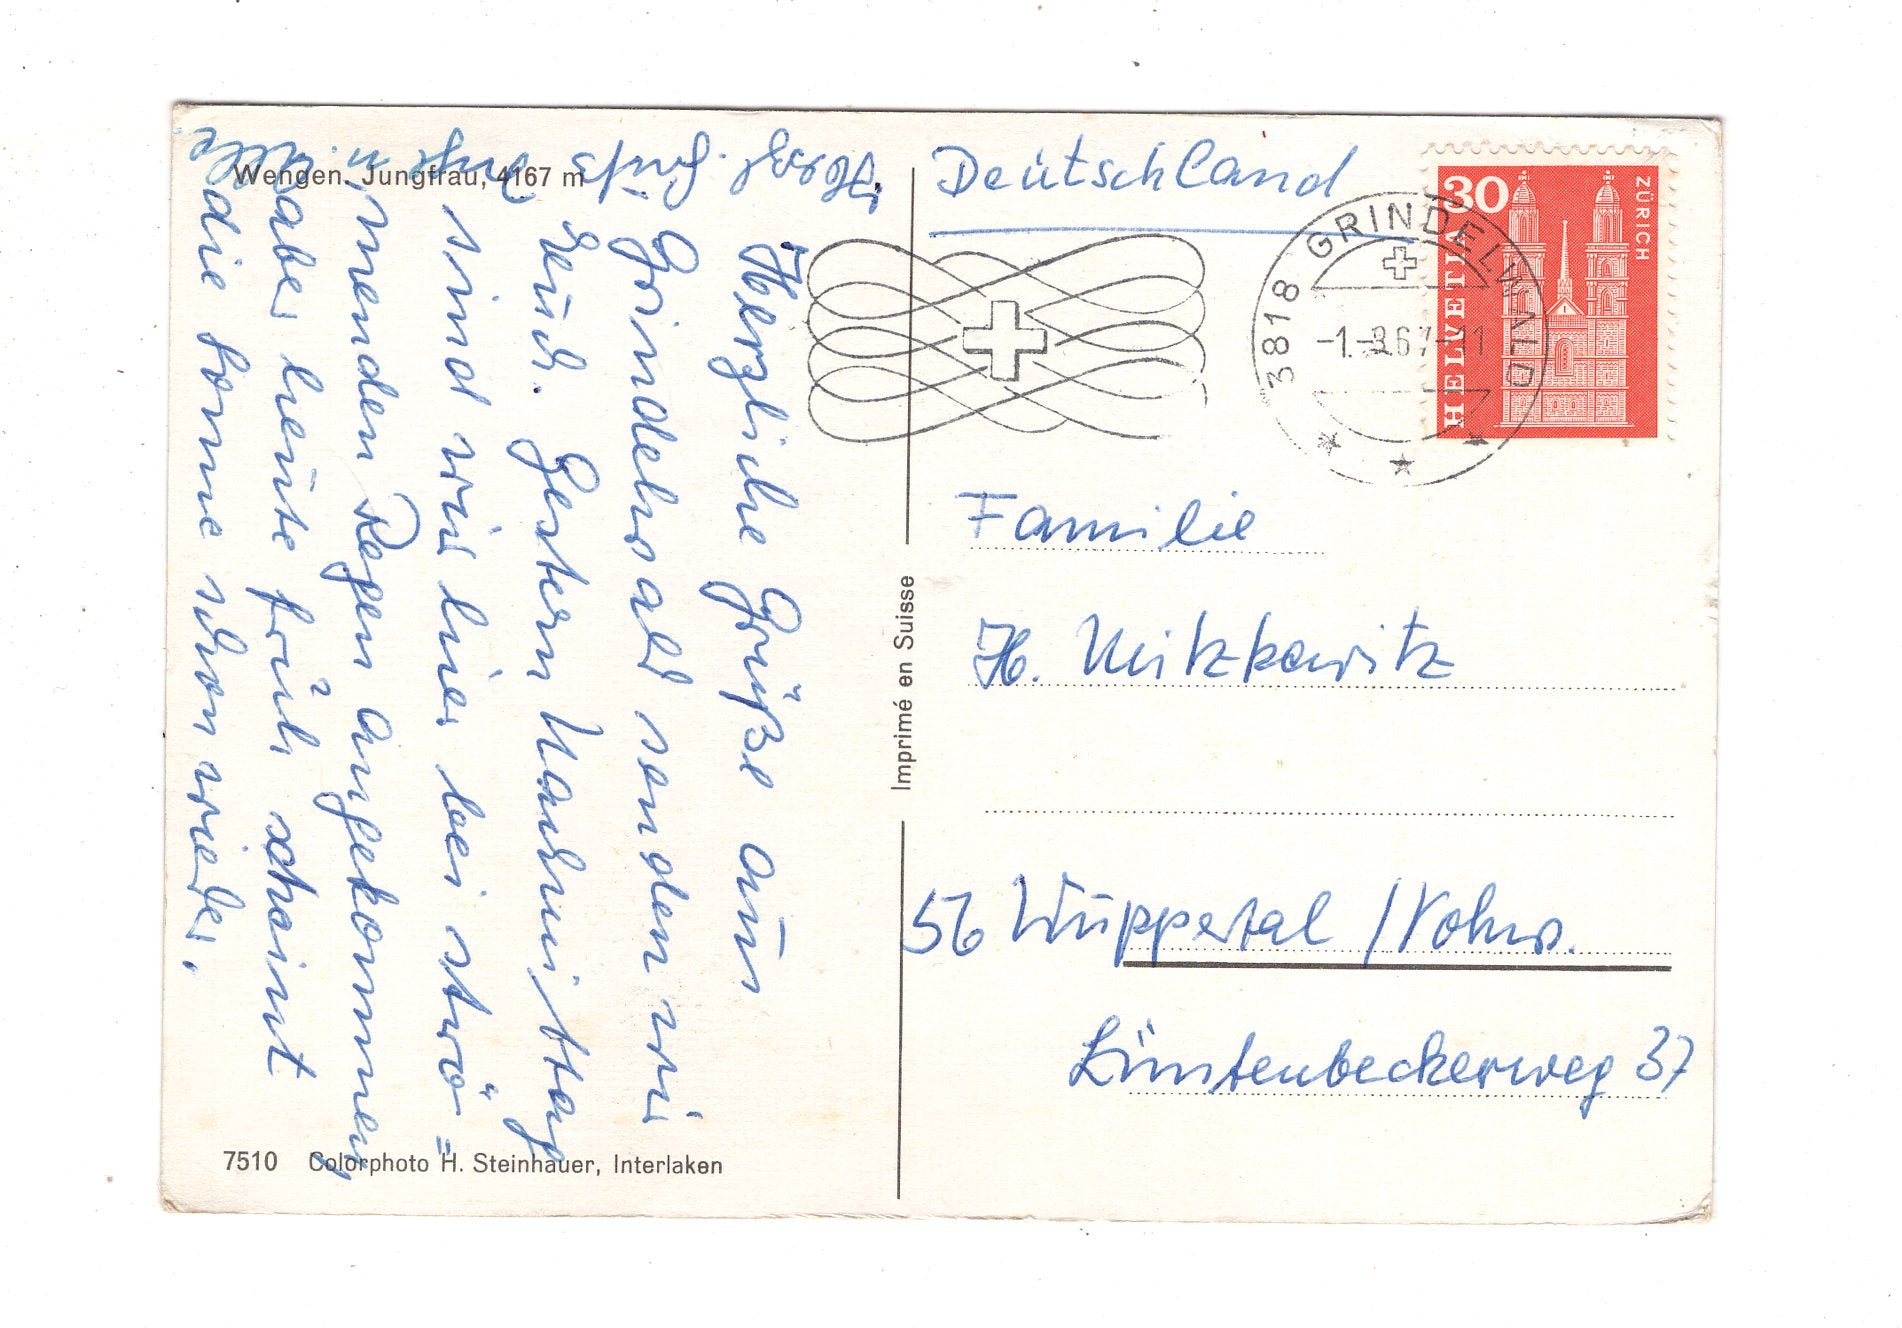 Wengen. Jungfrau, 4167 m
Herzliche Grüße aus
Grindelwald senden wir
Euch. Gestern Nachmittag
sind wir hier bei strö=
menden Regen angekommen,
aber heute früh scheint
die Sonne schon wieder.
Herzl.
7510 Colorphoto H. Steinhauer, Interlaken
Imprimé en Suisse
Deutschland
30
ZÜRICH
HELVETIA
3818 GRINDELWALD
-1.-8.67-11
Familie
H. Mitzkewitz
56 Wuppertal / Vohw.
Lüntenbeckerweg 37